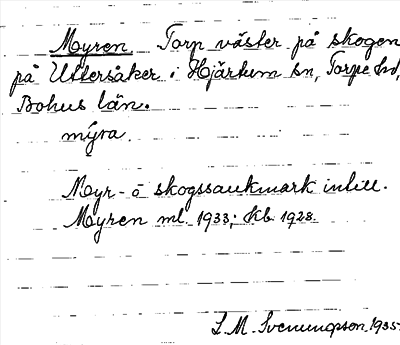 Myren Torp väster på skogen
på Uttersåker i Hjärtum sn, Torpe hd,
Bohus län.
myra.
Myr- o skogssankmark intill.
Myren ml. 1933; Kb 1928.
L. M. Svenungsson 1935.